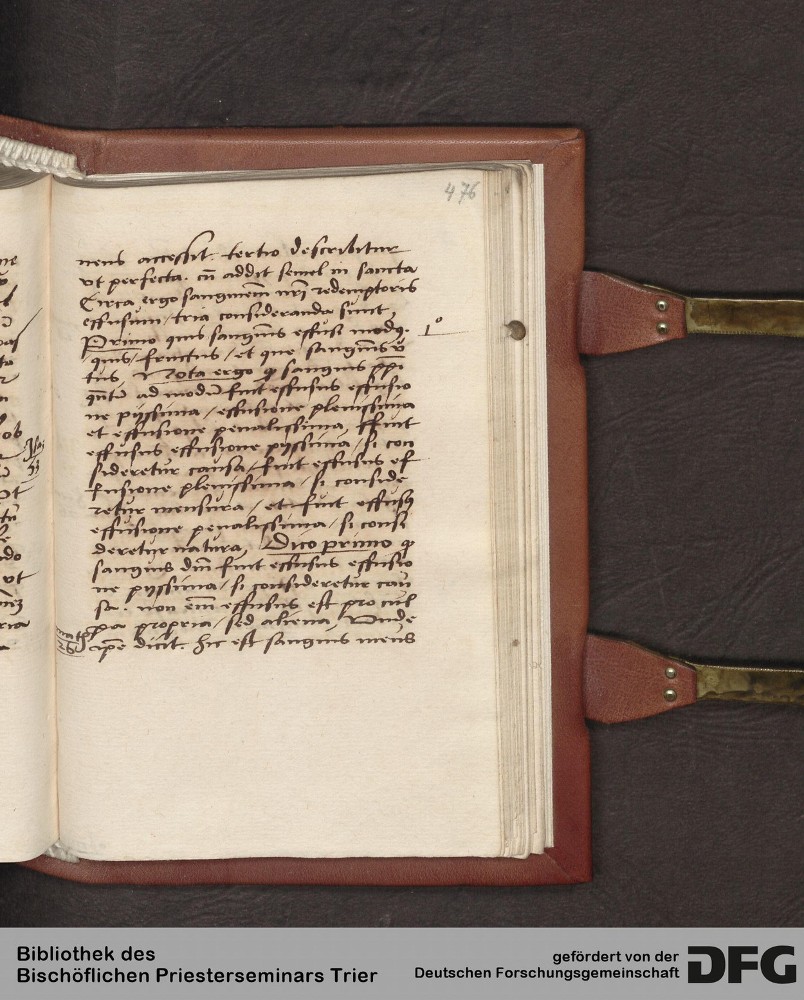 476
nens accessit. tertio describitur
vt perfecta. cū addit semel in sancta
Circa ergo sanguinem nr̄i redemptoris
effusum / tria consideranda sunt,
Primo quis sanguīs effusi modꝰ. 1º
quis fructus / et que sanguīs v̄
tus, Nota ergo ꝙ sanguis xp̄i
qn̄tū ad modū fuit effusus effusio
ne pijssima / effusione plenissima
et effusione penalissima, ffuit
effusus effusione pijssima / si con
sideretur causa / fuit effusus ef
fusione plenissima / si conside
retur mensura / et fuit effusꝰ
effusione penalissima / si consi
deretur natura, Dico primo ꝙ
sanguis dn̄i fuit effusus effusio
ne pijssima / si consideretur cau
sa. non em̄ effusus est pro cul
pa propria / sed aliena, Vnde
mat
26
ip̄e dicit. hic est sanguis meus
Bibliothek des
Bischöflichen Priesterseminars Trier
gefördert von der
Deutschen Forschungsgemeinschaft
DFG